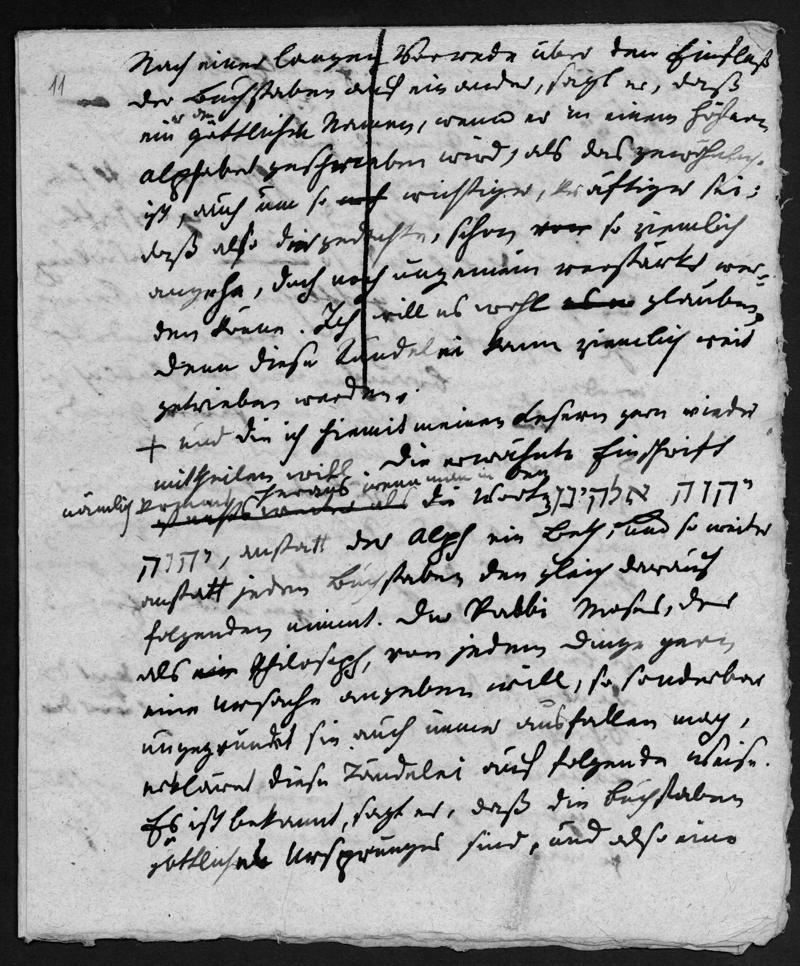 11
Nach einer langen Vorrede über den Einfluß
der Buchstaben auf einander, sagt er, daß
ein göttlicher Namen, wenn er in einem höhern
Alphabet geschrieben wird, als das gewöhnliche
ist, auch um so wichtiger, kräftiger sei;
daß also dies gedachte, schon so ziemlich
angehe, doch noch ungemein verstärkt wer-
den könne. Ich will es wohl glauben,
denn diese Tändelei kann ziemlich weit
getrieben werden.
+ und die ich hiemit meinen Lesern gern wieder
mittheilen will. Die erwähnte Einschrift
nämlich heraus, wenn man in den
die Worte יהוה אלהינו
יהוה, anstatt der Alph ein Beth, und so weiter
anstatt jedem Buchstaben den gleich darauf
folgenden nimmt. Der Rabbi Moses, der
als Philosoph, von jedem Dinge gern
eine Ursache angeben will, so sonderbar
ungegründet sie auch immer ausfallen mag,
erklärt diese Tändelei auf folgende Weise.
Es ist bekannt, sagt er, daß die Buchstaben
göttlichen Ursprunges sind, und also eine